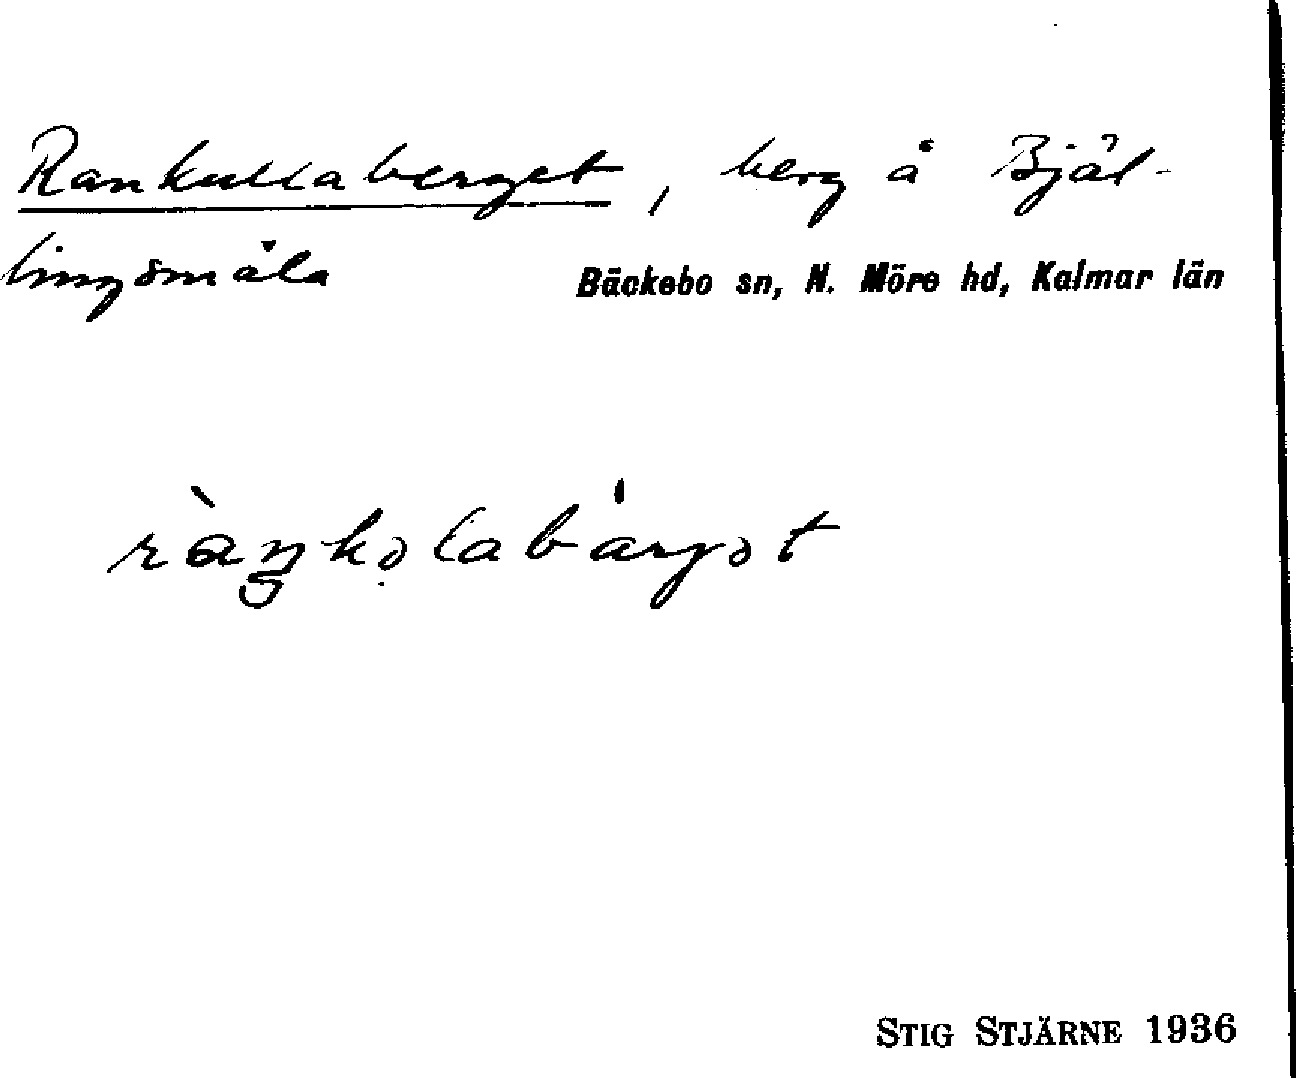 Rankullaberget, berg å Bjäl-
lingsmåla
Bäckebo sn, N. Möre hd, Kalmar län
ràŋkọlabárgət
STIG STJÄRNE 1936